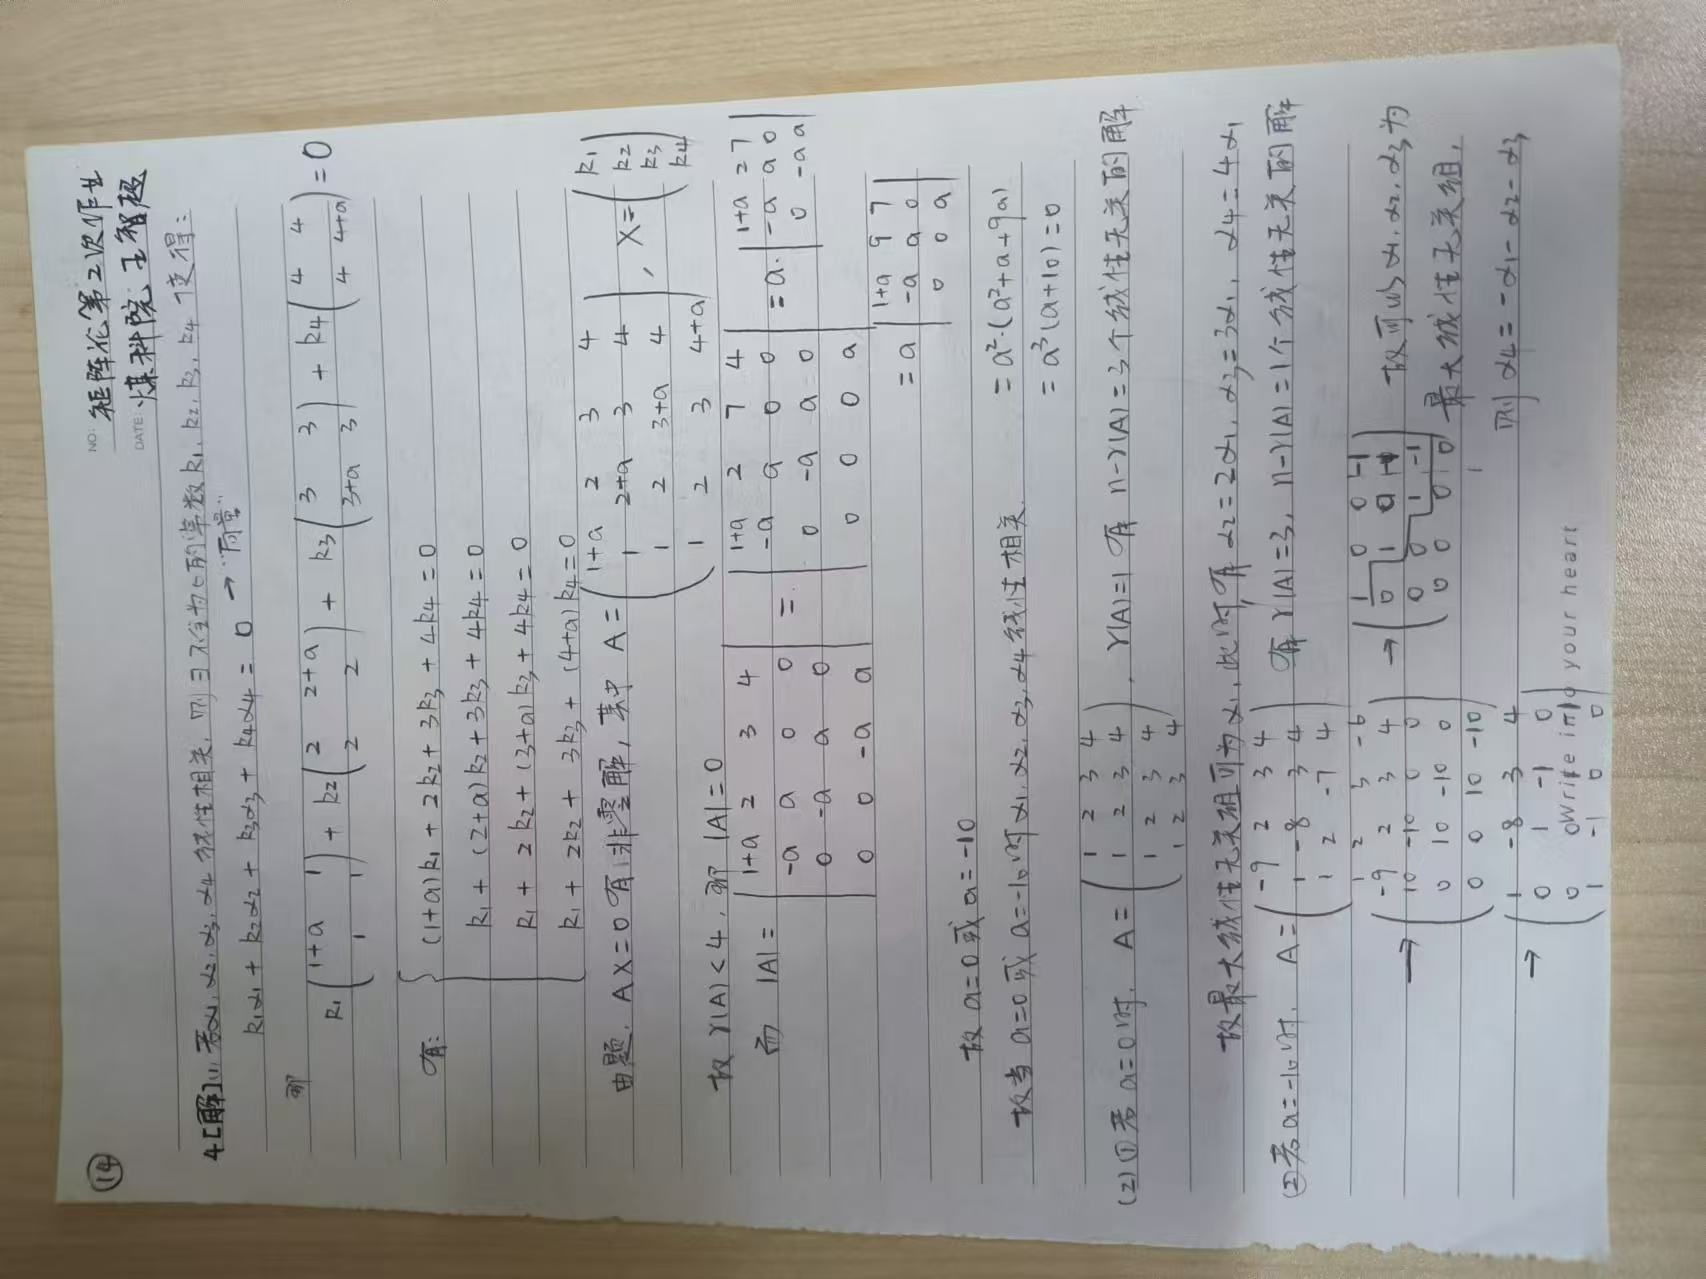 ⑭
NO: 矩阵论第2次作业
DATE: 煤科院 王智超
4[解](1) 若α1,α2,α3,α4线性相关,则∃不全为0的常数k1,k2,k3,k4使得:
k1α1+k2α2+k3α3+k4α4=0 →向量
即 k1(1+a 1 1 1)+k2(2 2+a 2 2)+k3(3 3 3+a 3)+k4(4 4 4 4+a)=0
有: { (1+a)k1+2k2+3k3+4k4=0
k1+(2+a)k2+3k3+4k4=0
k1+2k2+(3+a)k3+4k4=0
k1+2k2+3k3+(4+a)k4=0
由题,AX=0有非零解,其中 A=(1+a 2 3 4
1 2+a 3 4
1 2 3+a 4
1 2 3 4+a), X=(k1 k2 k3 k4)
故r(A)<4,即|A|=0
而 |A|=|1+a 2 3 4
-a a 0 0
0 -a a 0
0 0 -a a| = |1+a 2 7 4
-a a 0 0
0 -a a 0
0 0 0 a| =a·|1+a 2 7
-a a 0
0 -a a|
=a|1+a 9 7
-a a 0
0 0 a|
=a²·(a²+a+9a)
=a³(a+10)=0
故a=0或a=-10
故当a=0或a=-10时α1,α2,α3,α4线性相关.
(2)①若a=0时, A=(1 2 3 4
1 2 3 4
1 2 3 4
1 2 3 4), r(A)=1 有 n-r(A)=3个线性无关的解
故最大线性无关组可为α1,此时,有α2=2α1,α3=3α1,α4=4α1
②若a=-10时, A=(-9 2 3 4
1 -8 3 4
1 2 -7 4
1 2 3 -6) 有r(A)=3, n-r(A)=1个线性无关的解
→(-9 2 3 4
10 -10 0 0
0 10 -10 0
0 0 10 -10) →(1 0 0 -1
0 1 0 -1
0 0 1 -1
0 0 0 0) 故可以α1,α2,α3为
最大线性无关组,
→(1 -8 3 4
0 1 -1 0
0 0 1
1 -1 0 0) 则α4=-α1-α2-α3
Write into your heart